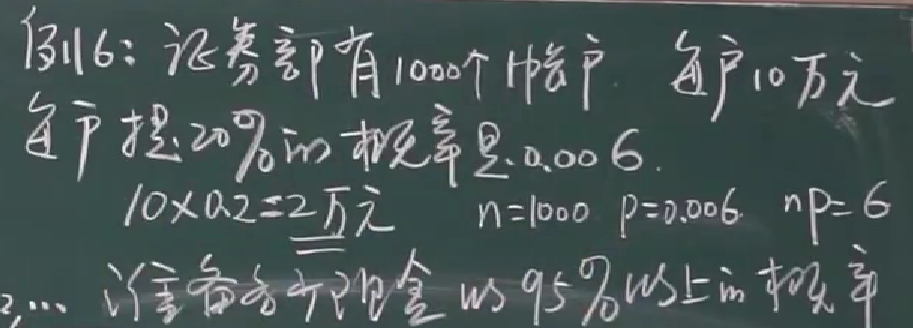 例6：证券部有1000个帐户 每户10万元
每户提20%的概率是0.006.
10×0.2=2万元 n=1000 p=0.006 np=6
2,… 准备多少现金 以95%以上的概率